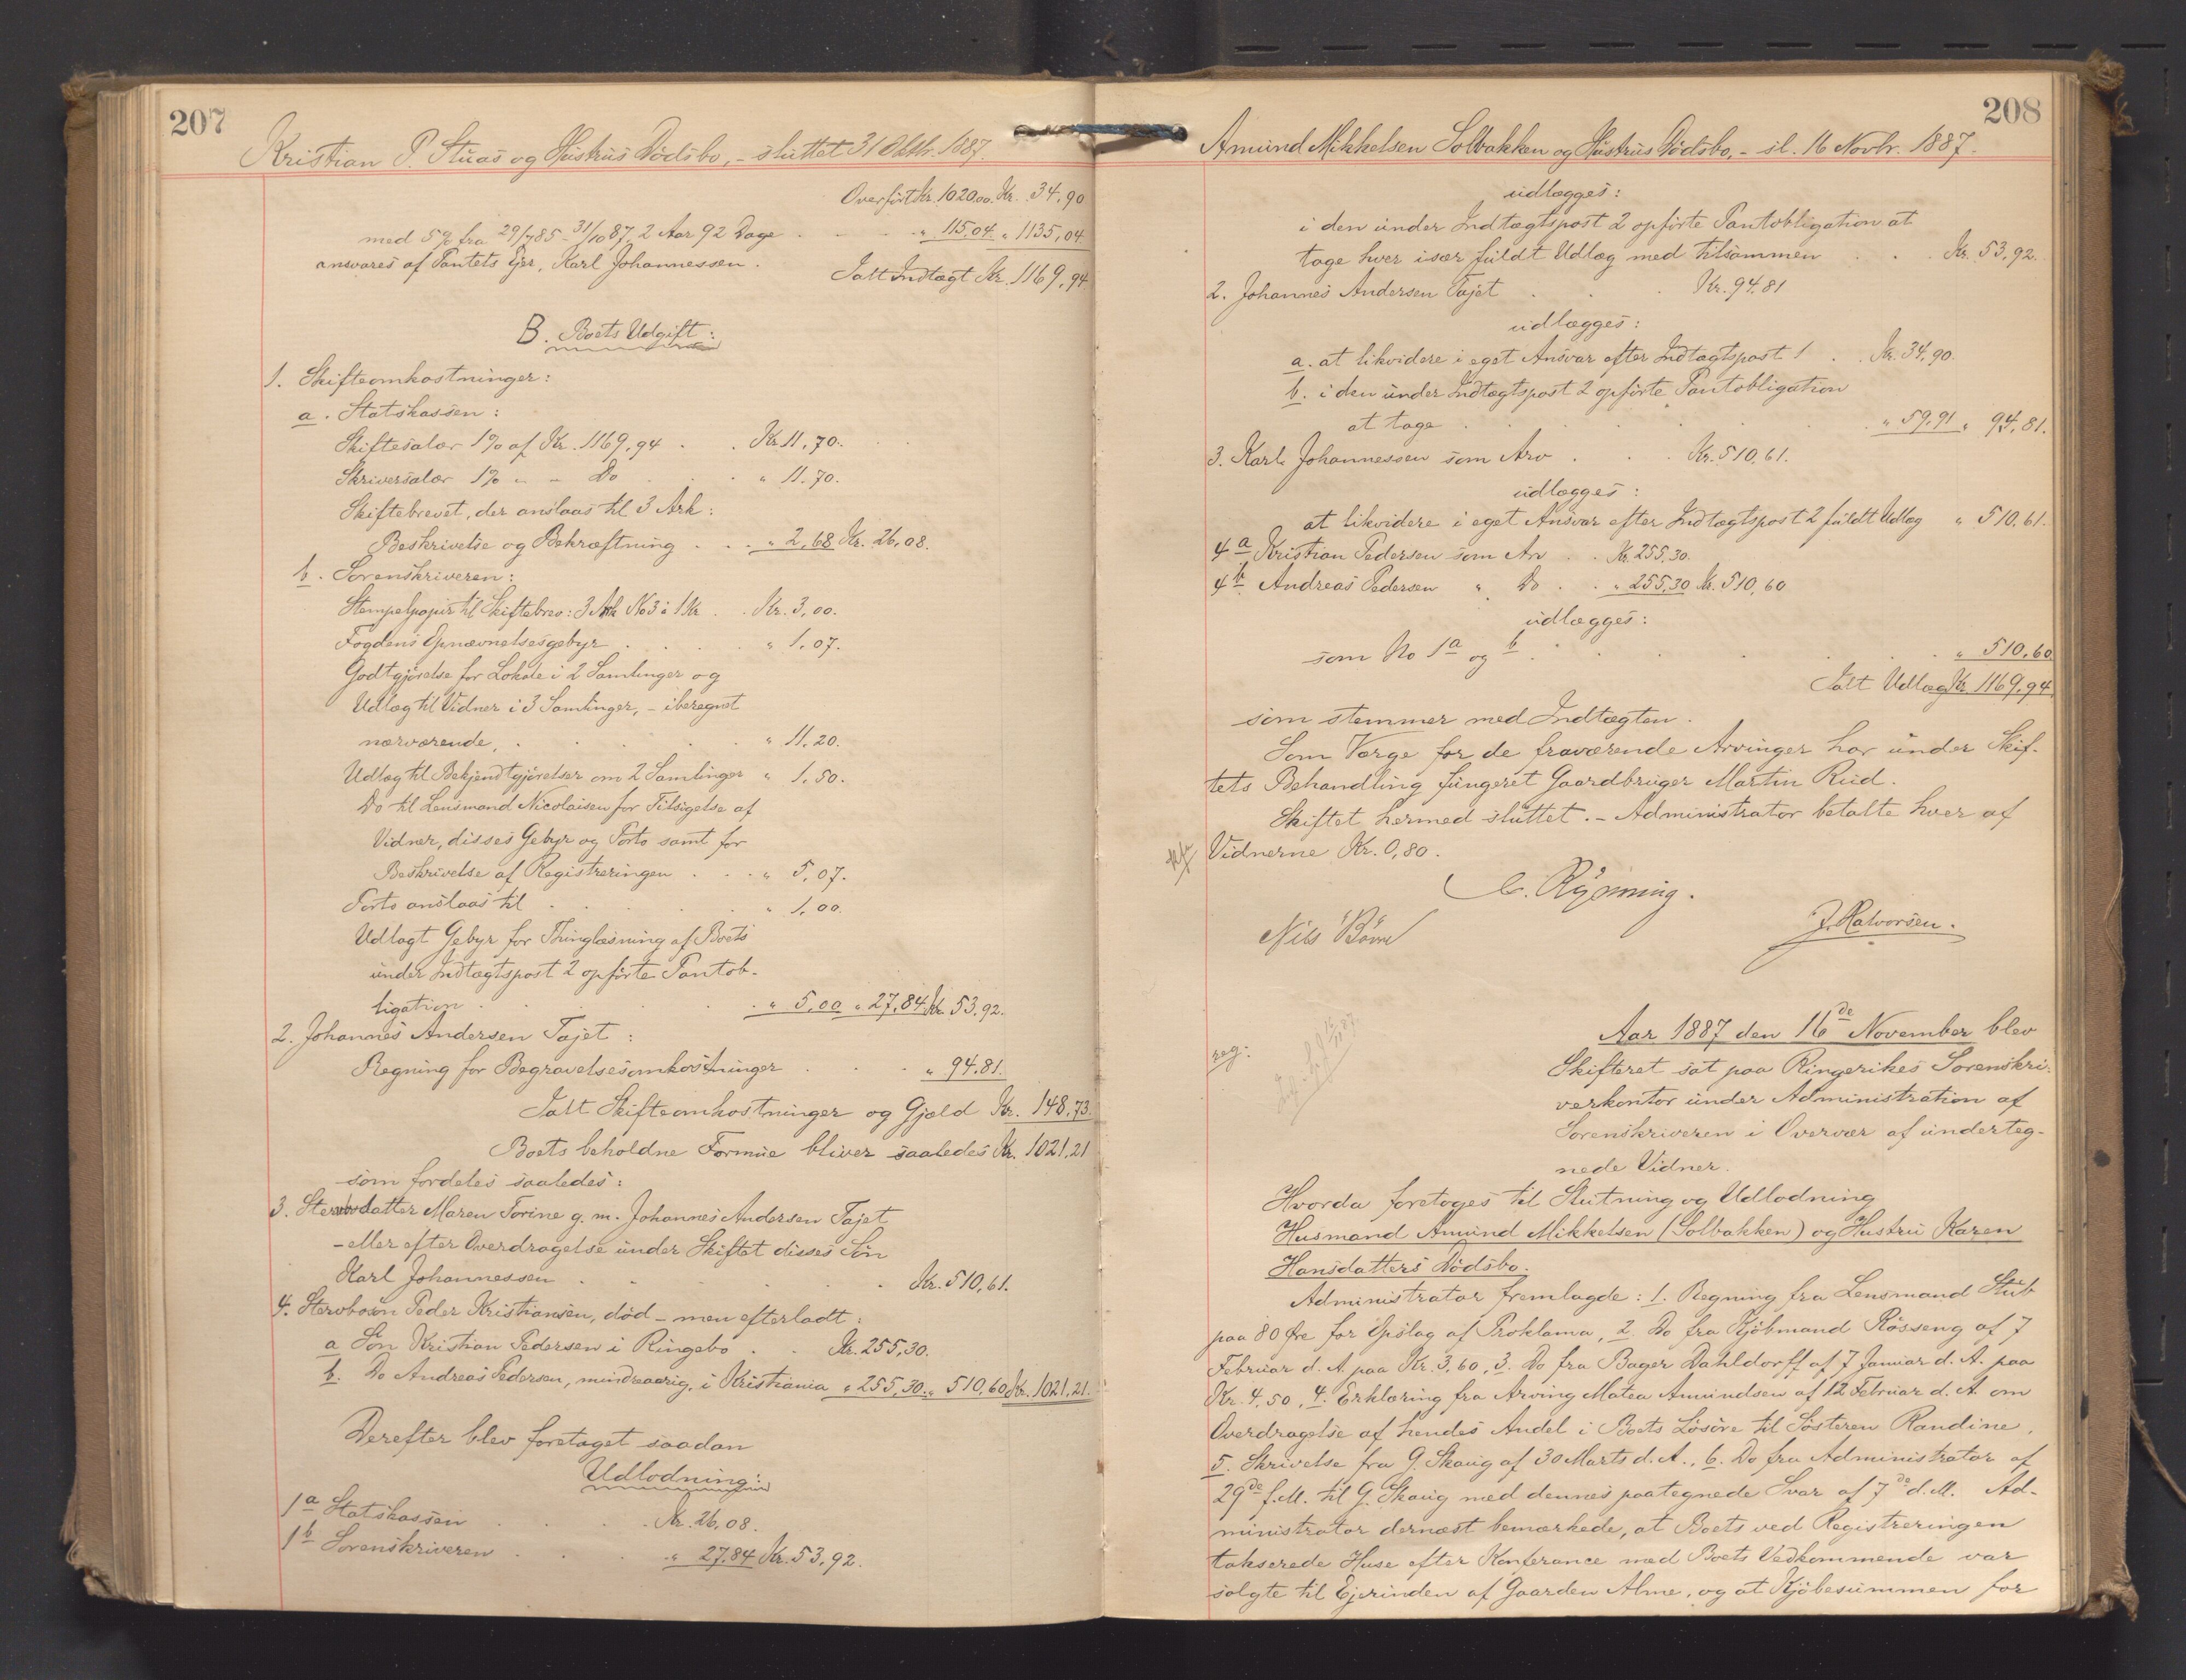 207
Kristian P. Stuas og Hustrus Dödsbo, - sluttet 31 Oktbr. 1887.
Overfört Kr. 1020.00. Kr. 34,90
med 5% fra 29/7 85 - 31/10 87, 2 Aar 92 Dage " 115,04 " 1135,04
ansvares af Pantets Ejer, Karl Johannessen.
Ialt Indtægt Kr. 1169,94
B. Boets Udgift:
1. Skifteomkostninger:
a. Statskassen:
Skiftesalær 1% af Kr. 1169,94 . . Kr. 11,70.
Skriversalær 1% " " Do . " 11.70.
Skiftebrevet, der anslaas til 3 Ark:
Beskrivelse og Bekræftning . . . " 2,68 Kr. 26,08.
b. Sorenskriveren:
Stempelpapir til Skiftebrev: 3 Ark No 3 à 1 Kr . . Kr. 3,00.
Fogdens Opnævnelsesgebyr . . . " 1,07.
Godtgjörelse for Lokale i 2 Samlinger og
Udlæg til Vidner i 3 Samlinger, - iberegnet
nærværende, . . . . " 11,20.
Udlæg til Bekjendtgjörelser om 2 Samlinger " 1,50.
Do til Lensmand Nicolaisen for Tilsigelse af
Vidner, disses Gebyr og Porto samt for
Beskrivelse af Registreringen . . . " 5,07.
Porto anslaas til . . . . " 1,00.
Udlagt Gebyr for Thinglæsning af Boets
under Indtægtspost 2 opförte Pantob-
ligation . . . . " 5,00 " 27,84 Kr. 53,92.
2. Johannes Andersen Tajet:
Regning for Begravelsesomkostninger . . . " 94.81.
Ialt Skifteomkostninger og Gjæld Kr. 148,73.
Boets beholdne Formue bliver saaledes Kr. 1021,21
som fordeles saaledes:
3. Stervbodatter Maren Torine g. m. Johannes Andersen Tajet
- eller efter Overdragelse under Skiftet disses Sön
Karl Johannessen . . . . . Kr. 510,61.
4. Stervbosön Peder Kristiansen, död - men efterladt:
a Sön Kristian Pedersen i Ringebo . . Kr. 255,30.
b. Do Andreas Pedersen, mindreaarig, i Kristiania " 255,30. " 510,60 Kr. 1021,21.
Derefter blev foretaget saadan
Udlodning:
1a Statskassen . . . . Kr. 26,08.
1b Sorenskriveren . . . " 27,84 Kr. 53,92.
208
Amund Mikkelsen Solbakken og Hustrus Dödsbo, - sl. 16 Novbr. 1887.
udlægges:
i den under Indtægtspost 2 opförte Pantobligation at
tage hver især fuldt Udlæg med tilsammen . . . Kr. 53,92.
2. Johannes Andersen Tajet . . . Kr. 94.81
udlægges:
a. at likvidere i eget Ansvar efter Indtægtspost 1 . . Kr. 34,90.
b. i den under Indtægtspost 2 opförte Pantobligation
at tage . . . . . . " 59,91 " 94,81.
3. Karl Johannessen som Arv . . . Kr. 510,61.
udlægges:
at likvidere i eget Ansvar efter Indtægtspost 2 fuldt Udlæg " 510,61.
4a Kristian Pedersen som Arv . . Kr. 255,30.
4b Andreas Pedersen " Do . . " 255,30 Kr. 510,60
udlægges:
som No 1a og b . . . . . . " 510,60
Ialt Udlæg Kr. 1169,94
som stemmer med Indtægten.
Som Værge for de fraværende Arvinger har under Skif-
tets Behandling fungeret Gaardbruger Martin Rud.
Skiftet hermed sluttet. - Administrator betalte hver af
Vidnerne Kr. 0,80.
C. Rynning.
Nils Börre
J. Halvorsen.
reg:
Aar 1887 den 16de November blev
Skifteret sat paa Ringerikes Sorenskri-
verkontor under Administration af
Sorenskriveren i Overvær af underteg-
nede Vidner.
Hvorda foretoges til Slutning og Udlodning
Husmand Amund Mikkelsen (Solbakken) og Hustru Karen
Hansdatters Dödsbo.
Administrator fremlagde: 1. Regning fra Lensmand Stub
paa 80 Öre for Opslag af Proklama, 2. Do fra Kjöbmand Rösseng af 7
Februar d. A. paa Kr. 3,60, 3. Do fra Bager Dahldorff af 7 Januar d. A. paa
Kr. 4,50, 4. Erklæring fra Arving Matea Amundsen af 12 Februar d. A. om
Overdragelse af hendes Andel i Boets Lösöre til Sösteren Randine,
5. Skrivelse fra G. Skaug af 30 Marts d. A., 6. Do fra Administrator af
29de f. M. til G. Skaug med dennes paategnede Svar af 7de d. M. Ad-
ministrator dernæst bemærkede, at Boets ved Registreringen
takserede Huse efter Konferance med Boets Vedkommende var
solgte til Ejerinden af Gaarden Alme, og at Kjöbesummen for